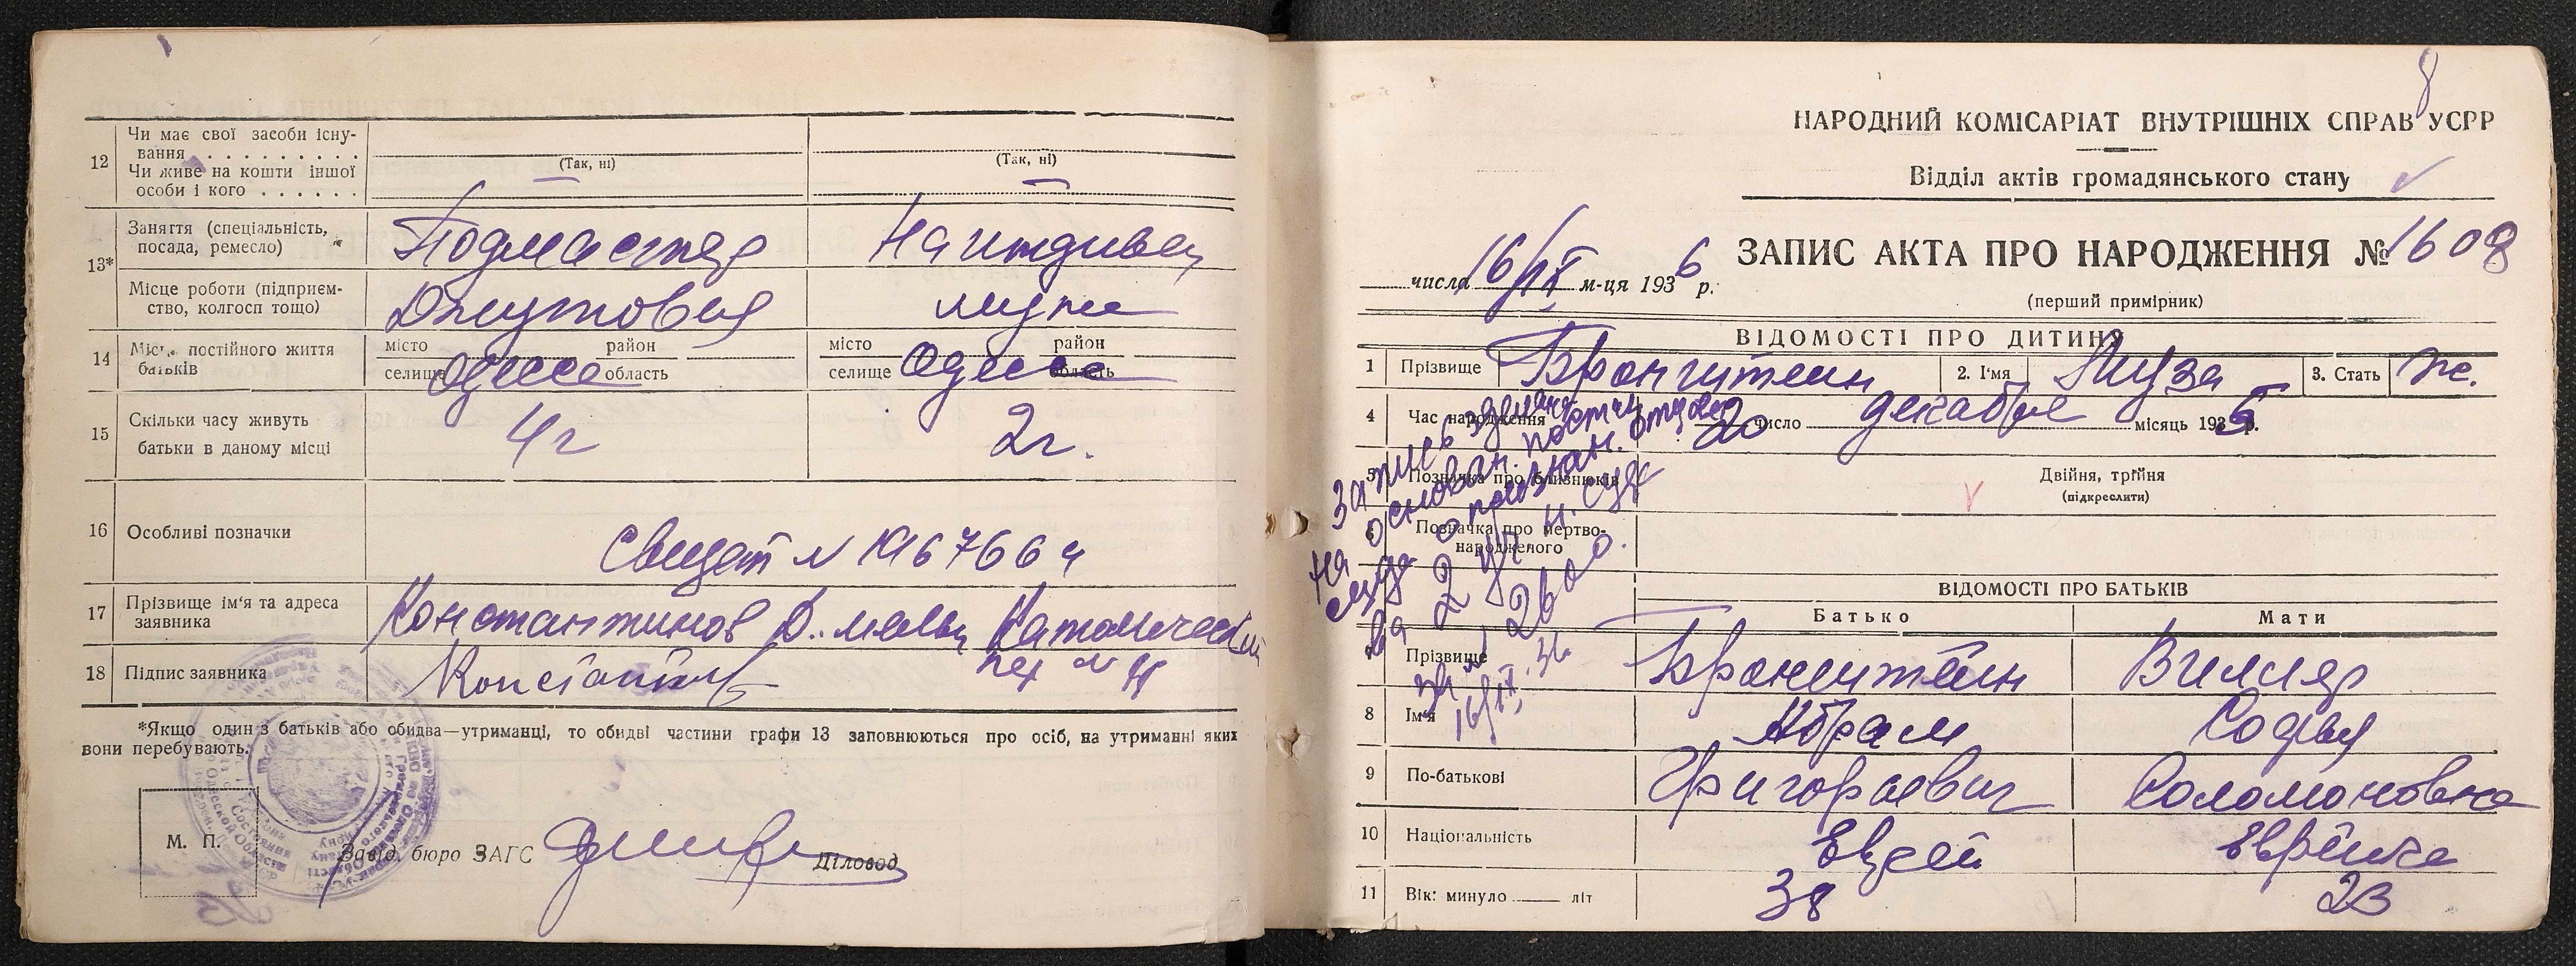 12 Чи має свої засоби існування . . . . . . . . .
Чи живе на кошти іншої особи і кого . . . . . .
(Так, ні) (Так, ні)
— —
13* Заняття (спеціальність, посада, ремесло) Подмастер На иждивец
Місце роботи (підприємство, колгосп тощо) Джутовая мужа
14 Місце постійного життя батьків місто район місто район
селище Одесса область селище Одесса область
15 Скільки часу живуть батьки в даному місці 4 г 2 г.
16 Особливі позначки Свидет N
17 Прізвище ім'я та адреса заявника Константинов
18 Підпис заявника
*Якщо один з батьків або обидва—утриманці, то обидві частини графи 13 заповнюються про осіб, на утриманні яких
вони перебувають.
М. П.
Завід. бюро ЗАГС Діловод
8
НАРОДНИЙ КОМІСАРІАТ ВНУТРІШНІХ СПРАВ УСРР
Відділ актів громадянського стану
ЗАПИС АКТА ПРО НАРОДЖЕННЯ № 1608
числа 16/IX м-ця 1936 р.
(перший примірник)
ВІДОМОСТІ ПРО ДИТИНУ
1 Прізвище Бронштейн 2. Ім'я Муза 3. Стать ж.
4 Час народження 20 число декабря місяць 1935 р.
5 Позначка про близнюків Двійня, трійня
(підкреслити)
6 Позначка про мертвонародженого
Запись сделана
на основан. постан.
суда о признан. отцовст
2 уч. н. суд
за № 2600.
16/IX. 36
ВІДОМОСТІ ПРО БАТЬКІВ
Батько Мати
Прізвище Бронштейн Вилляр
8 Ім'я Абрам Софья
9 По-батькові Григорьевич Соломоновна
10 Національність Еврей Еврейка
11 Вік: минуло —— літ 38 23